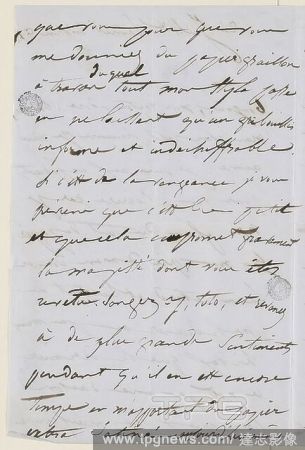 que vous pour que vous
me donniez du papier graillon
duquel
à travers tout mon style passe
en ne laissant qu'un gribouillis
informe et indéchiffrable.
Si c'est de la vengeance, je vous
préviens que c'est bien petit
et que cela compromet gravement
la majesté dont vous êtes
revêtu. Songez-y, toto, et revenez
à de plus grands sentiments
pendant qu'il en est encore
temps en m'apportant du papier
www.ipgnews.com 達志影像